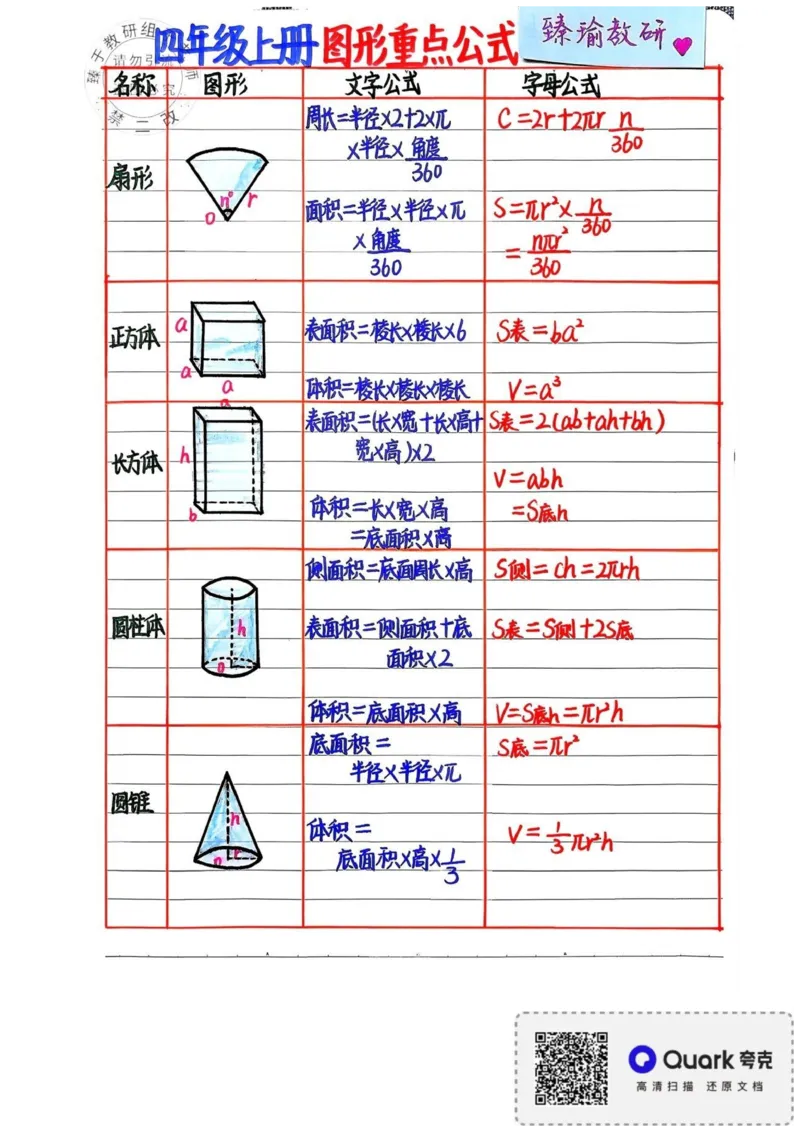 四年级上册图形重点公式
臻瑜教研
名称 图形 文字公式 字母公式
扇形
n° r
o
周长=半径×2+2×π
×半径×角度/360
C=2r+2πr n/360
面积=半径×半径×π
×角度/360
S=πr²× n/360
=nπr²/360
正方体
a
a
a
表面积=棱长×棱长×6
S表=6a²
体积=棱长×棱长×棱长
V=a³
长方体
a
h
b
表面积=(长×宽+长×高+
宽×高)×2
S表=2(ab+ah+bh)
体积=长×宽×高
=底面积×高
V=abh
=S底h
圆柱体
h
o
侧面积=底面周长×高
S侧=ch=2πrh
表面积=侧面积+底
面积×2
S表=S侧+2S底
体积=底面积×高
V=S底h=πr²h
圆锥
h
o r
底面积=
半径×半径×π
S底=πr²
体积=
底面积×高×1/3
V=1/3πr²h
Quark夸克
高清扫描 还原文档